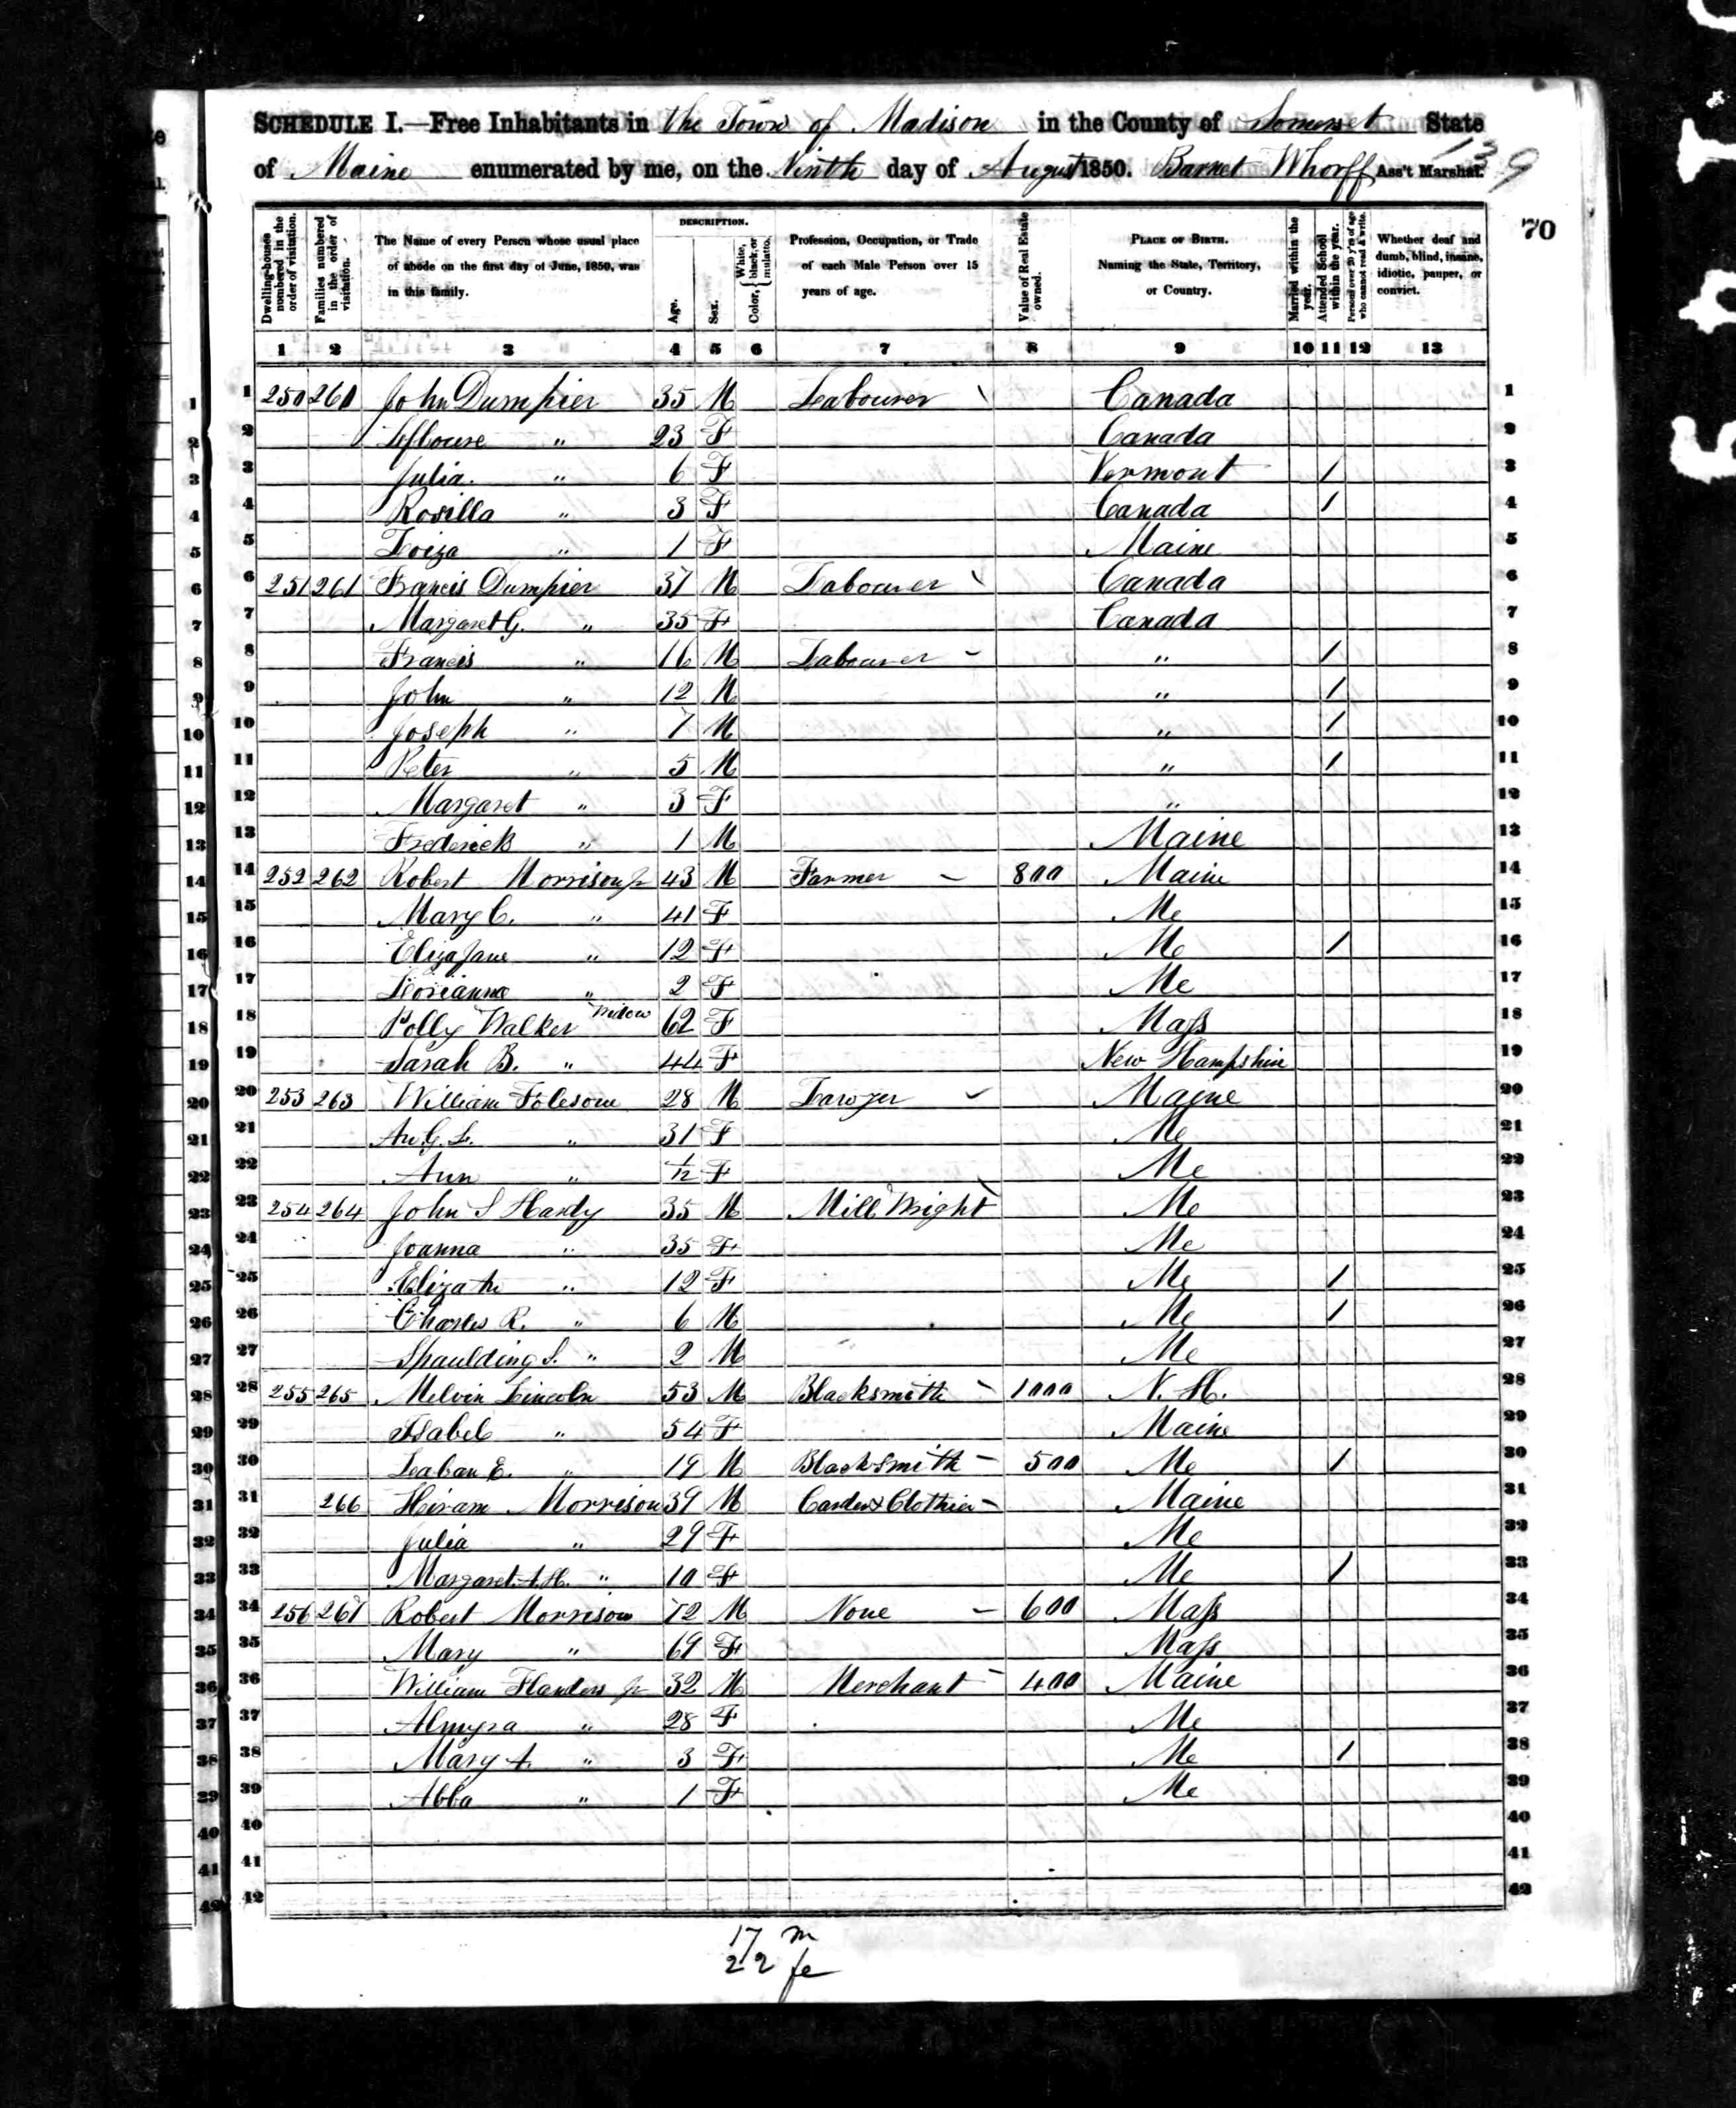 SCHEDULE I.—Free Inhabitants in The Town of Madison in the County of Somerset State
of Maine enumerated by me, on the Ninth day of August 1850. Barnet Whorff Ass't Marshal.
139
70
Dwelling-houses numbered in the order of visitation.
Families numbered in the order of visitation.
The Name of every Person whose usual place of abode on the first day of June, 1850, was in this family.
DESCRIPTION.
Age.
Sex.
Color, White, black, or mulatto.
Profession, Occupation, or Trade of each Male Person over 15 years of age.
Value of Real Estate owned.
PLACE OF BIRTH. Naming the State, Territory, or Country.
Married within the year.
Attended School within the year.
Persons over 20 y'rs of age who cannot read & write.
Whether deaf and dumb, blind, insane, idiotic, pauper, or convict.
1 2 3 4 5 6 7 8 9 10 11 12 13
1 250 260 John Dumpier 35 M Labourer Canada 1
2 " 23 F Canada 2
3 Julia " 6 F Vermont / 3
4 Rosilla " 3 F Canada / 4
5 Loiza " 1 F Maine 5
6 251 261 Francis Dumpier 37 M Labourer Canada 6
7 Margaret G. " 35 F Canada 7
8 Francis " 16 M Labourer " / 8
9 John " 12 M " / 9
10 Joseph " 7 M " / 10
11 Peter " 5 M " / 11
12 Margaret " 3 F " 12
13 Frederick " 1 M Maine 13
14 252 262 Robert Morrison Jr 43 M Farmer 800 Maine 14
15 Mary C. " 41 F Me 15
16 Eliza Jane " 12 F Me / 16
17 Lorianna " 2 F Me 17
18 Polly Walker Widow 62 F Mass 18
19 Sarah B. " 44 F New Hampshire 19
20 253 263 William Folesom 28 M Lawyer Maine 20
21 An. G. L. " 31 F Me 21
22 Ann " 1/12 F Me 22
23 254 264 John S Hardy 35 M Mill Wright Me 23
24 Joanna " 35 F Me 24
25 Eliza An " 12 F Me / 25
26 Charles R. " 6 M Me / 26
27 Spaulding S. " 2 M Me 27
28 255 265 Melvin Lincoln 53 M Blacksmith 1000 N. H. 28
29 Isabel " 54 F Maine 29
30 Laban E. " 19 M Blacksmith 500 Me / 30
31 266 Hiram Morrison 39 M Carder & Clothier Maine 31
32 Julia " 29 F Me 32
33 Margaret A. H. " 10 F Me / 33
34 256 267 Robert Morrison 72 M None 600 Mass 34
35 Mary " 69 F Mass 35
36 William Flanders Jr 32 M Merchant 400 Maine 36
37 Almyra " 28 F Me 37
38 Mary A. " 3 F Me / 38
39 Abba " 1 F Me 39
40 40
41 41
42 42
17 m
22 fe